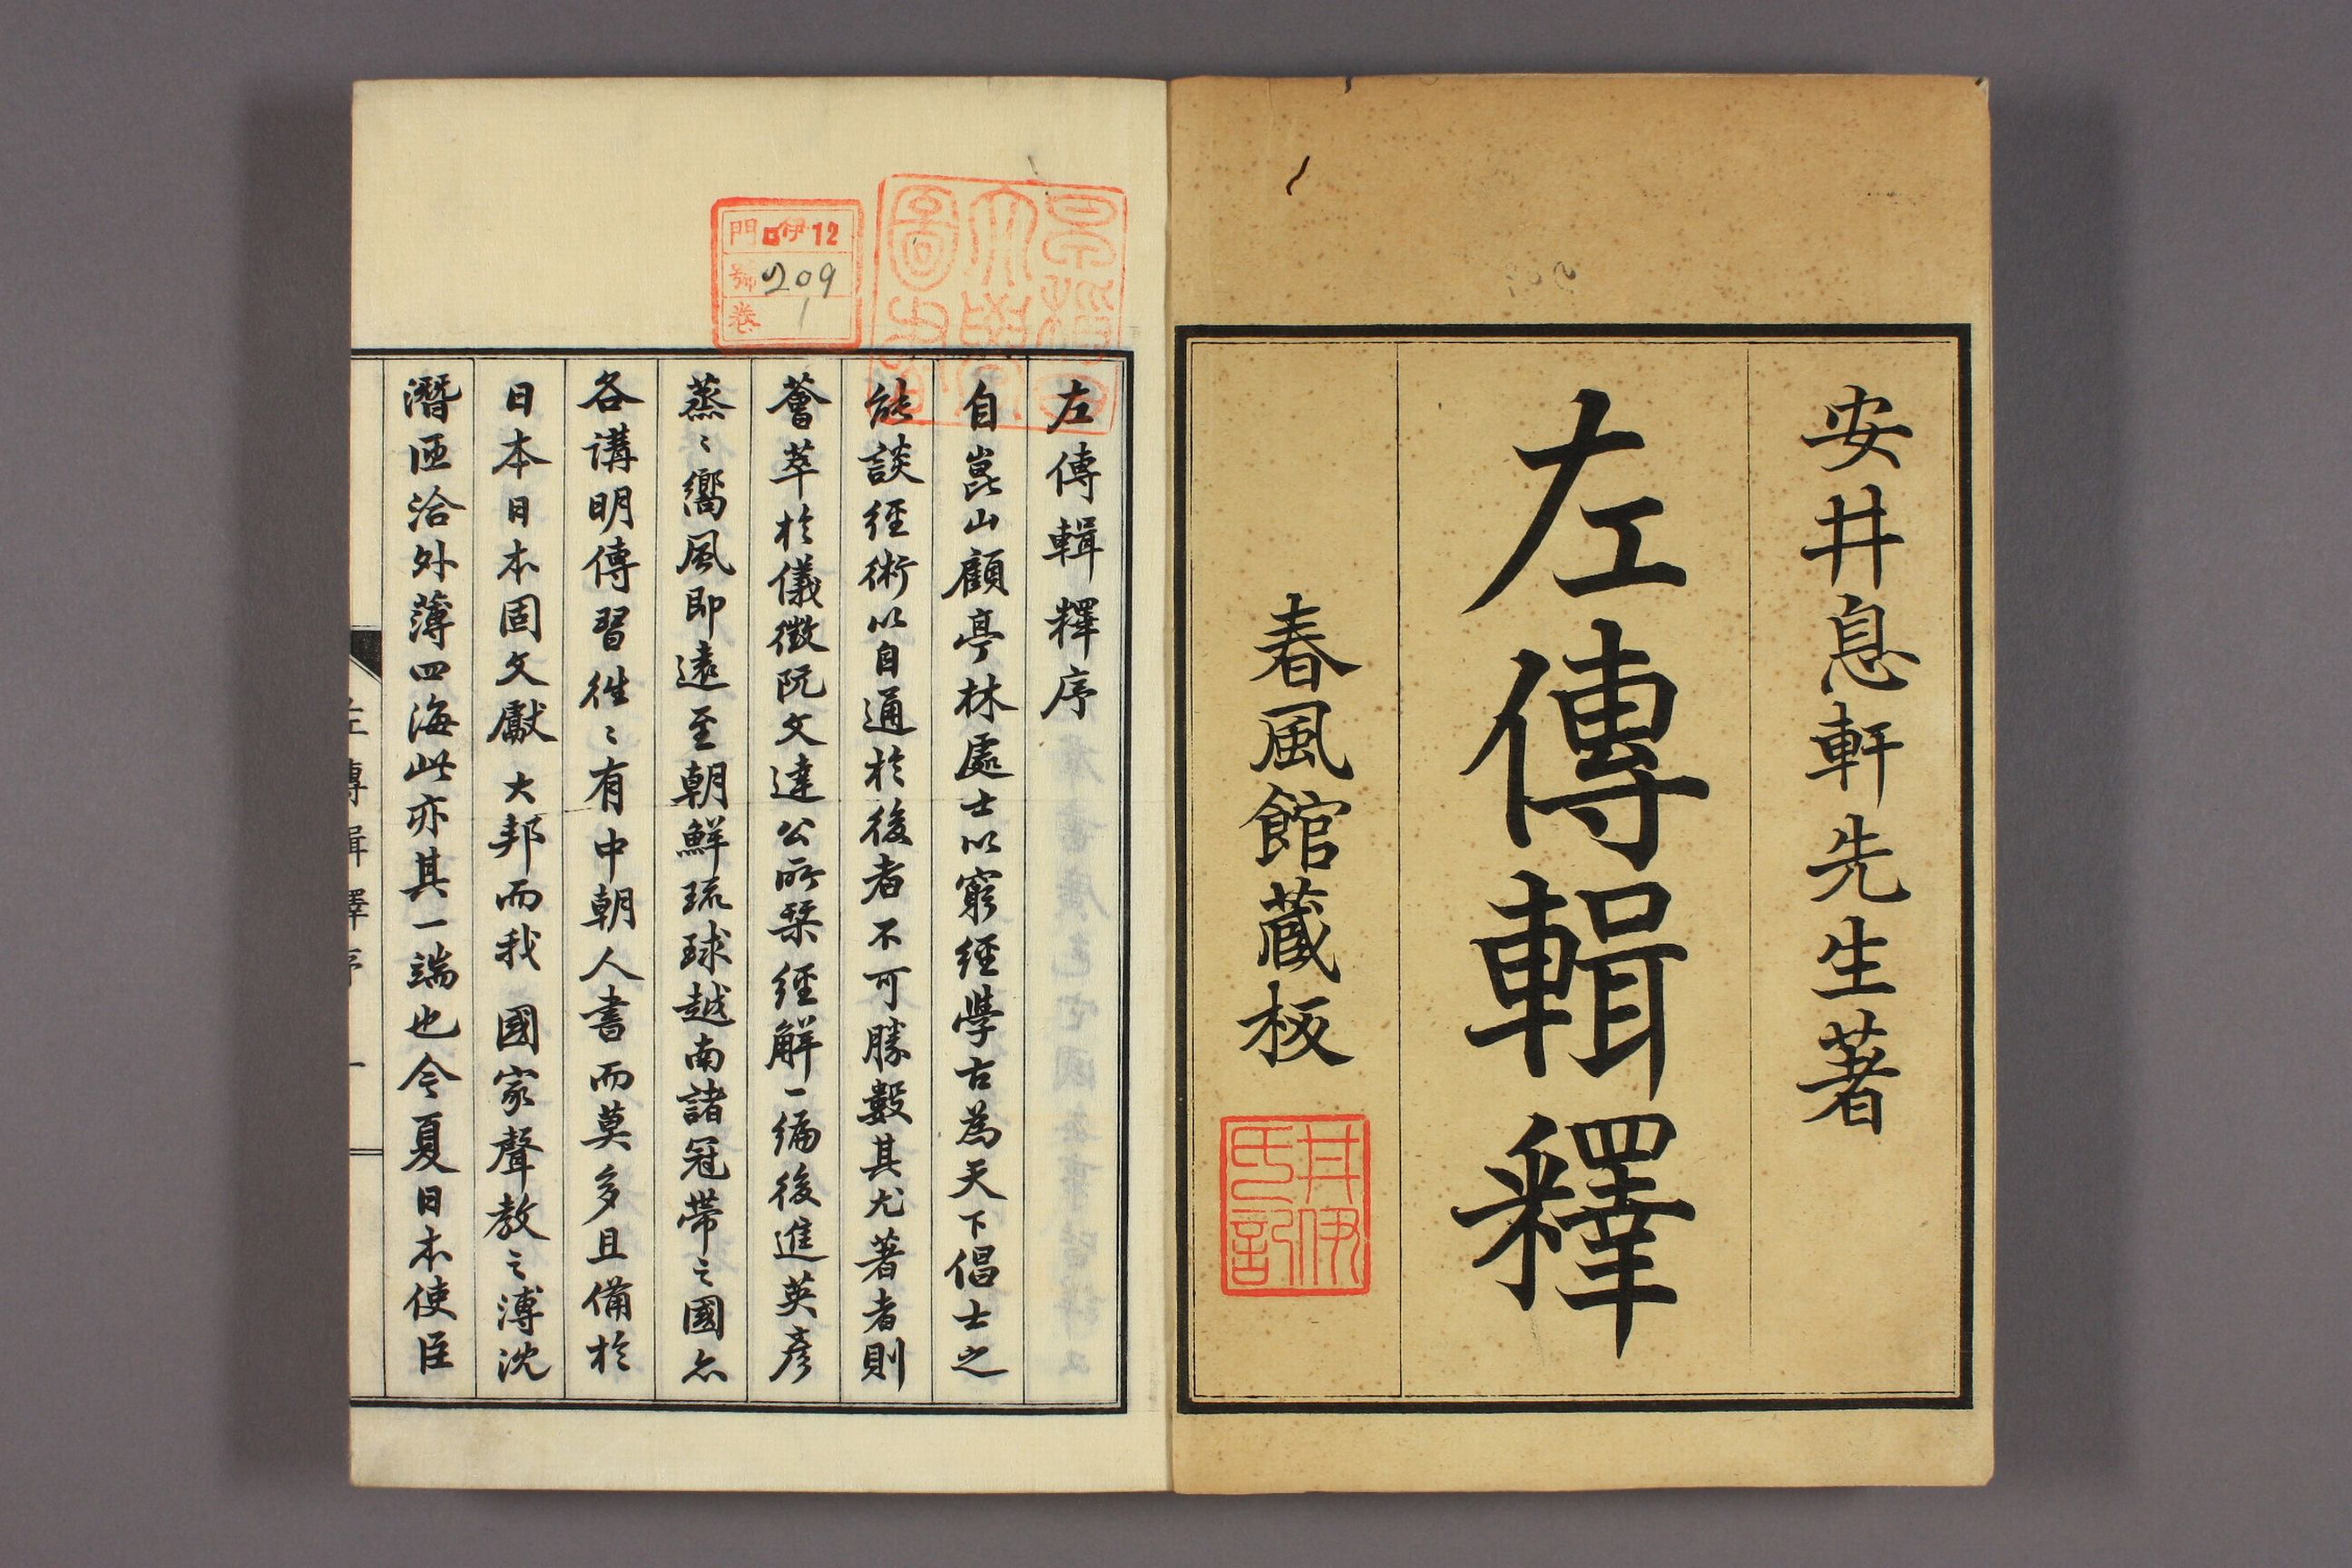 安井息軒先生著
左傳輯釋
春風館藏板
井伊
氏記
早稻田
大學
圖書
門 伊12
號 209
卷 1
左傳輯釋序
自崑山顧亭林處士以窮經學古為天下倡士之
能談經術以自通於後者不可勝數其尤著者則
薈萃於儀徵阮文達公所栞經解一編後進英彥
蒸〻嚮風即遠至朝鮮琉球越南諸冠帶之國亦
各講明傳習徃〻有中朝人書而莫多且備於
日本日本固文獻大邦而我 國家聲教之溥沈
潛洒洽外薄四海此亦其一端也今夏日本使臣
左傳輯釋序 一